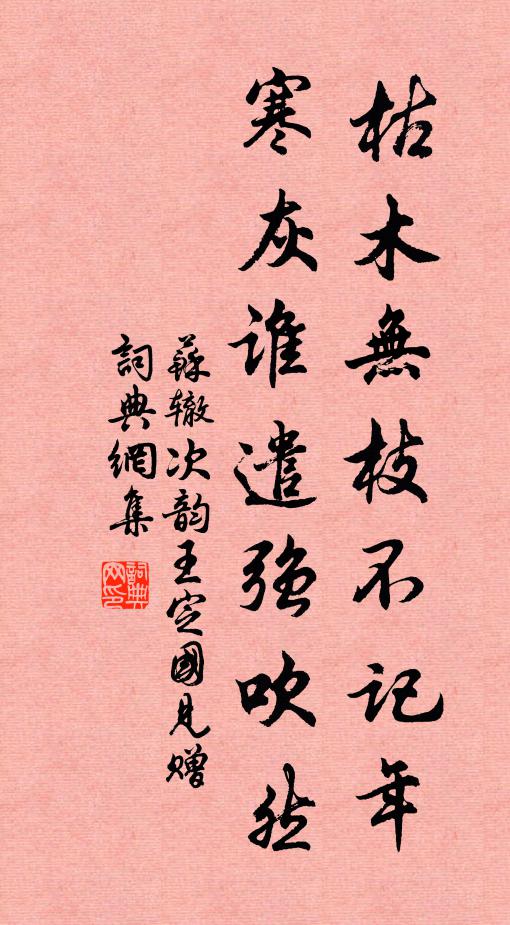 枯木無枝不记年
寒灰谁遣強吹然
蘇辙次韵王定國見赠
詞典網集
詞典
网印